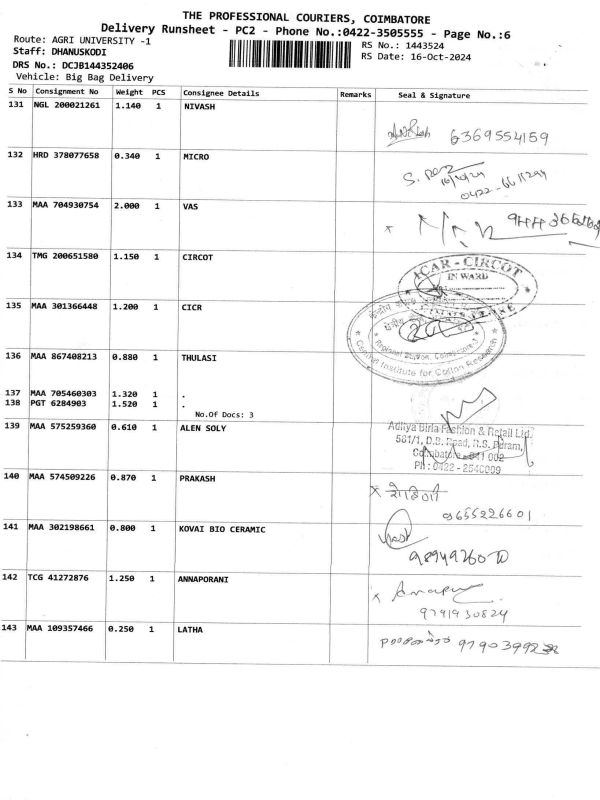 THE PROFESSIONAL COURIERS, COIMBATORE
Delivery Runsheet - PC2 - Phone No.:0422-3505555 - Page No.:6
Route: AGRI UNIVERSITY -1
RS No.: 1443524
Staff: DHANUSKODI
RS Date: 16-Oct-2024
DRS No.: DCJB144352406
Vehicle: Big Bag Delivery
S No Consignment No Weight PCS Consignee Details Remarks Seal & Signature
131 NGL 200021261 1.140 1 NIVASH
6369554159
132 HRD 378077658 0.340 1 MICRO
133 MAA 704930754 2.000 1 VAS
134 TMG 200651580 1.150 1 CIRCOT
ICAR - CIRCOT
INWARD
135 MAA 301366448 1.200 1 CICR
Central Institute for Cotton Research
136 MAA 867408213 0.880 1 THULASI
137 MAA 705460303 1.320 1 .
138 PGT 6284903 1.520 1 .
No.Of Docs: 3
139 MAA 575259360 0.610 1 ALEN SOLY
Aditya Birla Fashion & Retail Ltd.
561/1, D.B. Road, R.S. Puram,
Coimbatore - 641 002
Ph : 0422 - 2540009
140 MAA 574509226 0.870 1 PRAKASH
9655226601
141 MAA 302198661 0.800 1 KOVAI BIO CERAMIC
142 TCG 41272876 1.250 1 ANNAPORANI
9791930824
143 MAA 109357466 0.250 1 LATHA